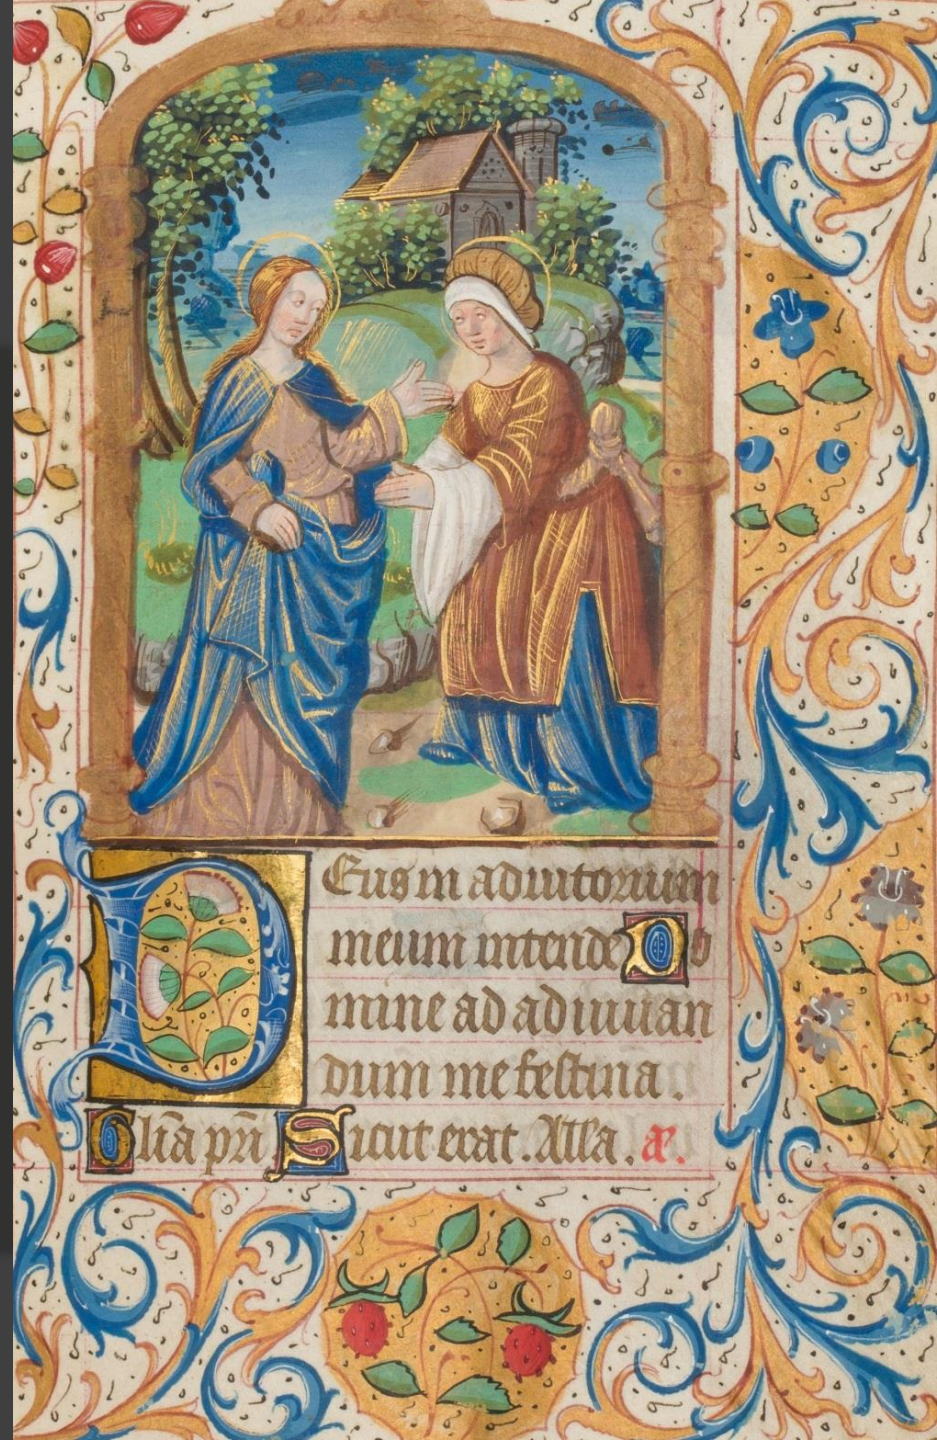 Deus in adiutorium
meum intende Do
mine ad adiuuan
dum me festina.
Glia pri Sicut erat. Alla. a.